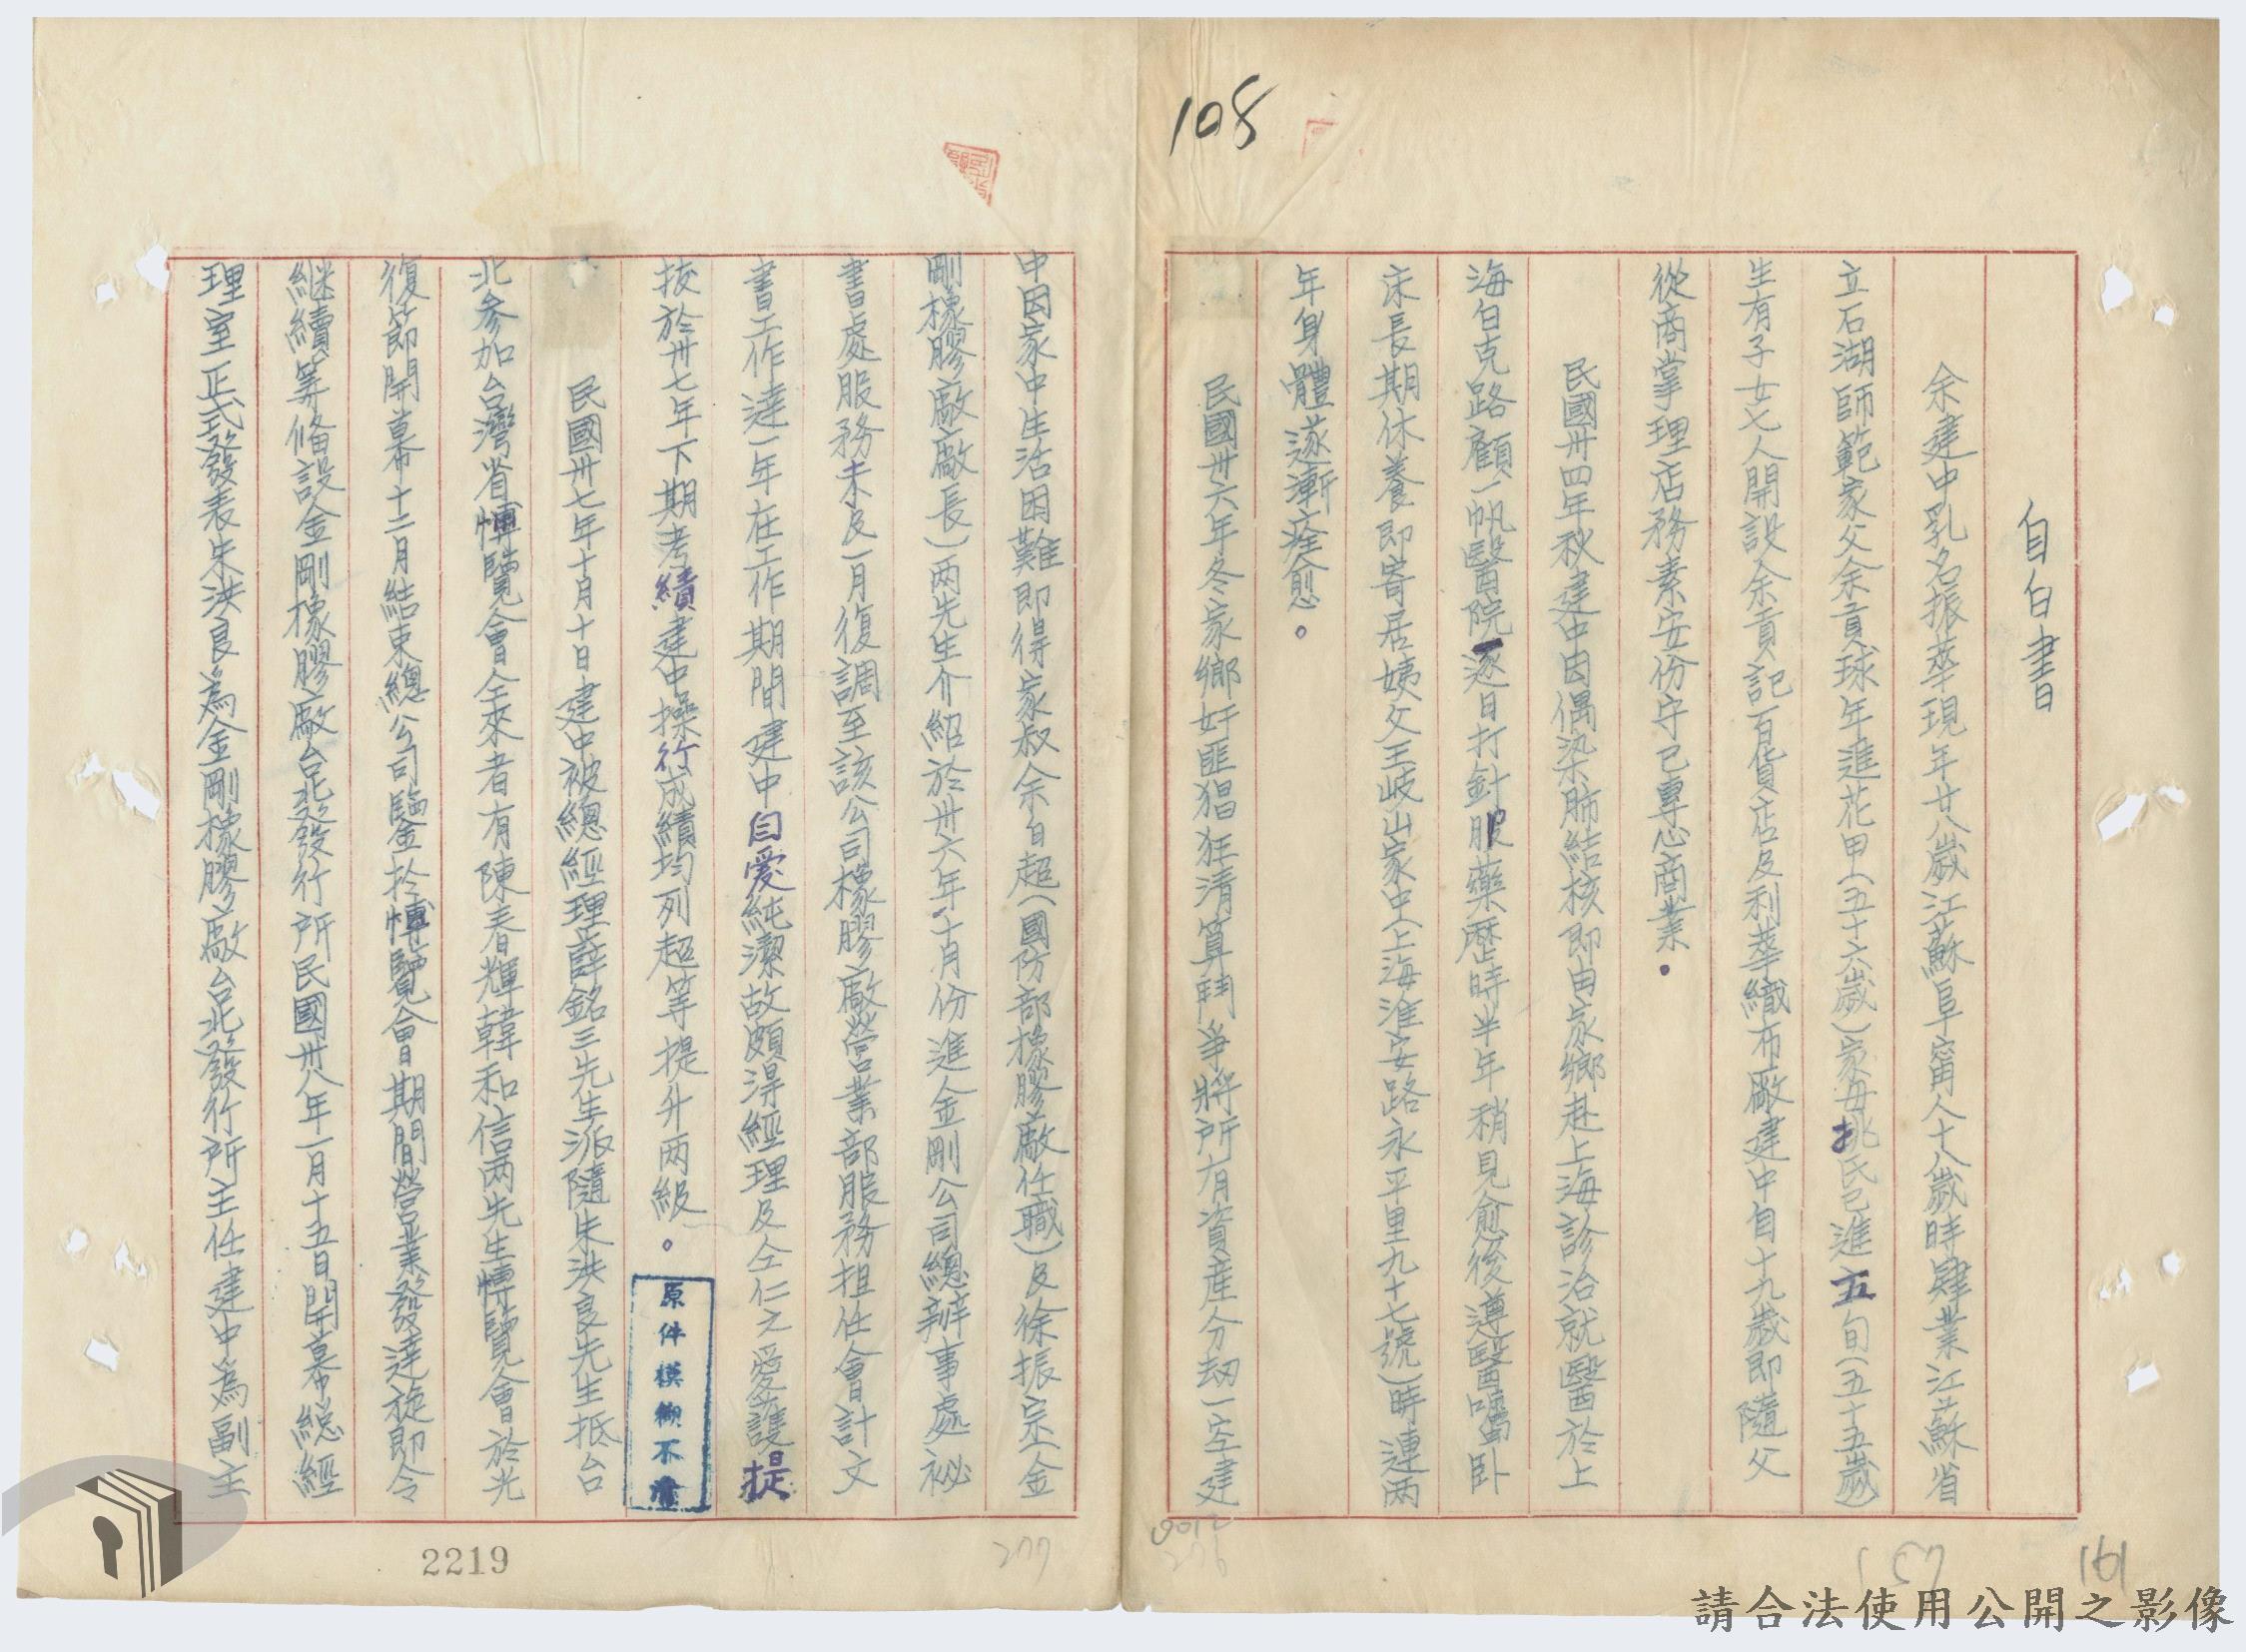 108
自白書
余建中乳名振華現年廿八歲江蘇阜甯人十八歲時肄業江蘇省
立石湖師範家父余貢球年進花甲(五十六歲)家母姚氏已進五旬(五十五歲)
生有子女七人開設余貢記百貨店及利華織布廠建中自十九歲即隨父
從商掌理店務素安份守己專心商業。
民國卅四年秋建中因偶染肺結核即由家鄉赴上海診治就醫於上
海白克路顧一帆醫院逐日打針服藥歷時半年稍見愈後遵醫囑臥
床長期休養即寄居姨父王岐山家中(上海淮安路永平里九十七號)時連两
年身體遂漸痊愈。
民國卅六年冬家鄉奸匪猖狂清算鬥爭將所有資産分刼一空建
中因家中生活困難即得家叔余自超(國防部橡膠廠任職)及徐振宗(金
剛橡膠廠廠長)两先生介紹於卅六年十月份進金剛公司總辦事處祕
書處服務未及一月復調至該公司橡膠廠營業部服務担任會計文
書工作達一年在工作期間建中自愛純潔故頗淂經理及仝仁之愛護提
拔於卅七年下期考績建中操行成績均列超等提升两級。
民國卅七年十月十日建中被總經理薛銘三先生派隨朱洪良先生抵台
北參加台灣省博覽會仝來者有陳春輝韓和信两先生博覽會於光
復節開幕十二月結束總公司鑒於博覽會期間營業發達旋即令
継續筹備設金剛橡膠廠台北發行所民國卅八年一月十五日開幕總經
理室正式發表朱洪良為金剛橡膠廠台北發行所主任建中為副主
原件模糊不清
2219
277
276
161
請合法使用公開之影像